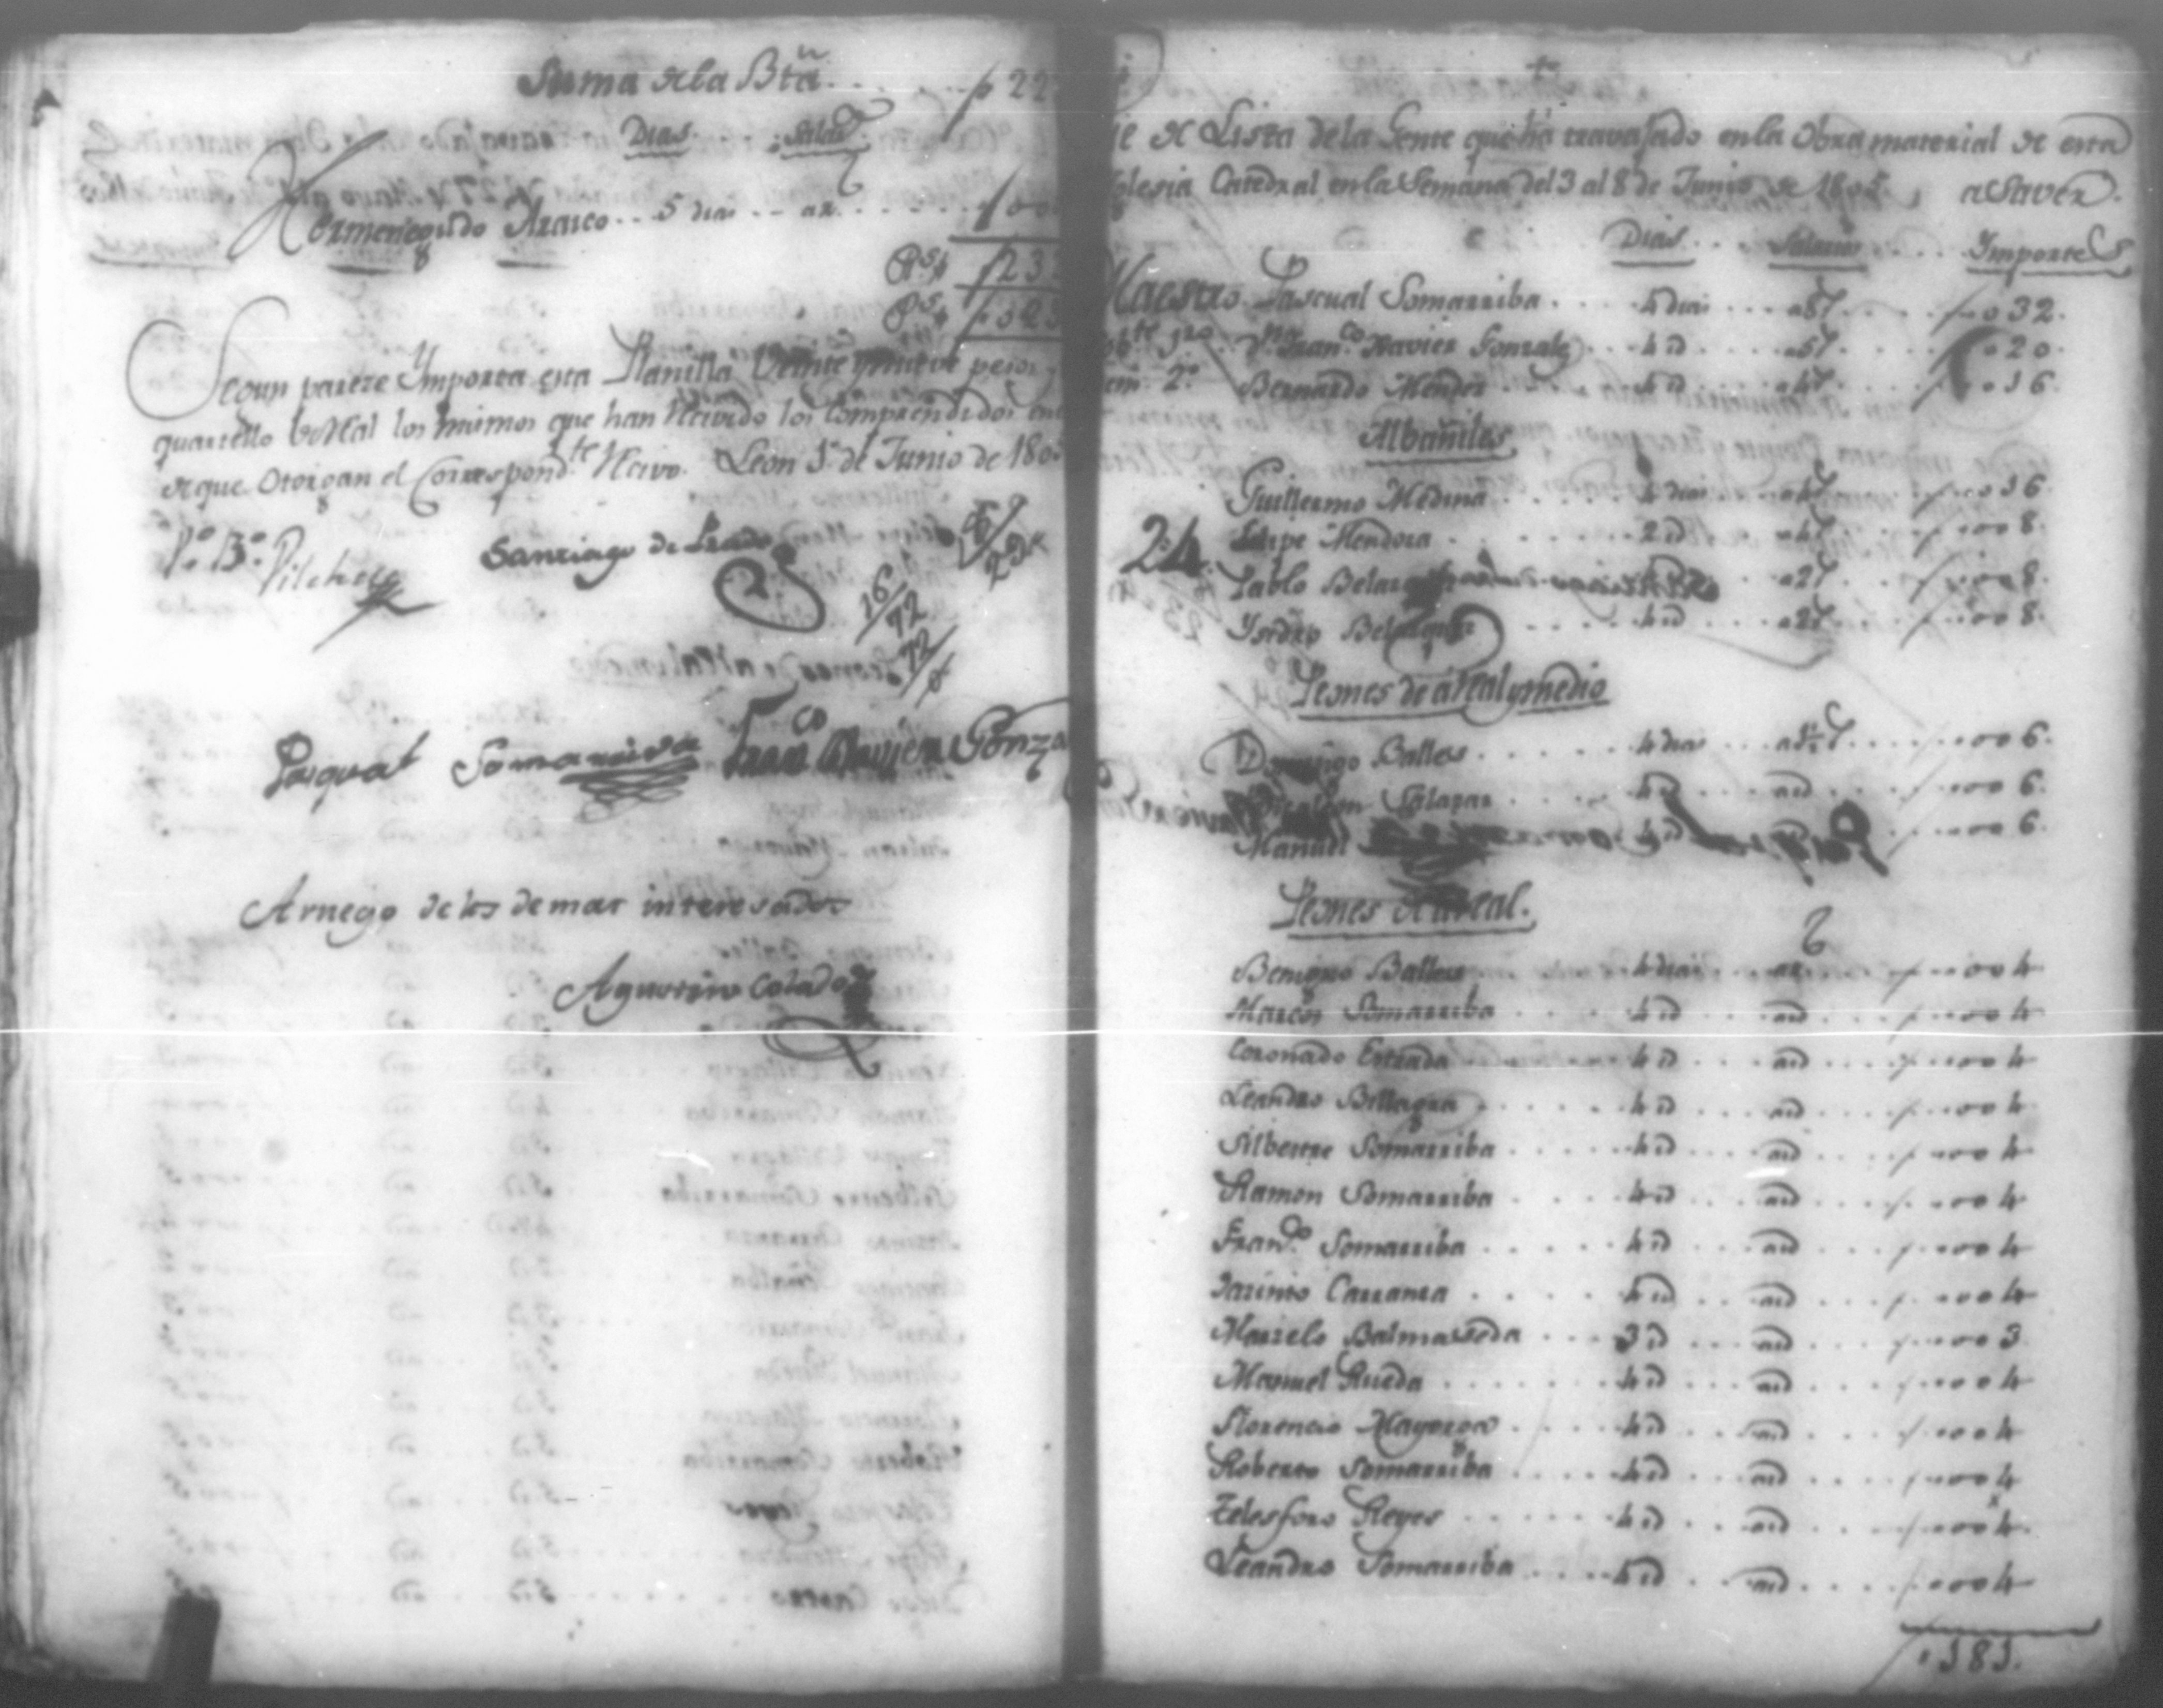 Suma de la Bta. . . . . . . p 22
Dias. Salar
Hermenegildo Arauco . . 5 dias . . a 1r.
Rs. p 23
Ps. p 029
Segun pareze Ymporta esta Planilla Veinte y nueve pesos y
quartillo los mismos que han Recivido los Comprendidos en
de que Otorgan el Correspondte. Recivo. Leon 1º. de Junio de 180
Vº. Bº. Pilchez
Santiago de Prado
16/72
72/8
Pasqual Somarriva Franco. Xavier Gonza
A ruego de los demas interesados
Agustin
de Lista de la Gente que ha travajado en la Obra material de esta
glesia Catedral en la Semana del 3 al 8 de Junio de 1805, a Saver.
Dias . . . Salarios . . . Importes
Maestro. Pascual Somarriba . . . . 4 dias . . . a 8r . . . . p . . 032.
1ro. Dn. Franco. Xavier Gonzalez . . . 4 id . . . a 5r . . . . 020.
2º. Bernardo Mendez . . . . . 4 id . . . a 4r . . . . p . . 016.
Albañiles
Guillermo Medina . . . . . . 4 dias . . . a 4r . . . . p . . 016.
24. Felipe Mendoza . . . . . . 2 id . . . a 4r . . . . p . . 008.
Pablo . . . a 2r . . . . p . . 008.
Ysidro . . . . . 4 id . . . a 2r . . . . p . . 008.
Peones de a Real y medio
Domingo Balles . . . . . . 4 dias . . . a 1½r . . . . p . . 006.
Salazar . . . . . 4 id . . . a id . . . . p . . 006.
Manuel 4 id . . . . p . . 006.
Peones de a Real.
Benigno Balles . . . . . 4 dias . . . a 1r . . . . p . . 004
Marcos Somarriba . . . . . 4 id . . . a id . . . . p . . 004
Coronado Estrada . . . . . 4 id . . . a id . . . . p . . 004
Leandro Billagra . . . . . 4 id . . . a id . . . . p . . 004
Silbestre Somarriba . . . . . 4 id . . . a id . . . . p . . 004
Ramon Somarriba . . . . . 4 id . . . a id . . . . p . . 004
Franco. Somarriba . . . . . 4 id . . . a id . . . . p . . 004
Jacinto Carranza . . . . . 4 id . . . a id . . . . p . . 004
Marzelo Balmaseda . . . . 3 id . . . a id . . . . p . . 003
Manuel Rueda . . . . . . 4 id . . . a id . . . . p . . 004
Florencio Mayorga . . . . . 4 id . . . a id . . . . p . . 004
Roberto Somarriba . . . . . 4 id . . . a id . . . . p . . 004
Telesforo Reyes . . . . . . 4 id . . . a id . . . . p . . 004.
Leandro Somarriba . . . . . 4 id . . . a id . . . . p . . 004
p 181.